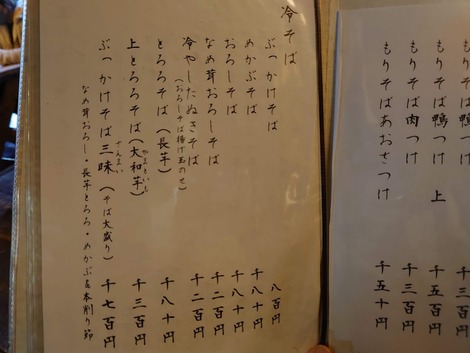 もりそば鴨つけ 千三百円
もりそば鴨つけ 上 千五百円
もりそば肉つけ 千三百円
もりそばあおさつけ 千五十円
冷そば
ぶっかけそば 八百円
めかぶそば 千八十円
おろしそば 千八十円
なめ茸おろしそば 千二百円
冷やしたぬきそば 千二百円
(おろしそば揚げ玉のせ)
とろろそば(長芋) 千八十円
上とろろそば(大和芋) 千三百円
やまといも
ぶっかけそば三昧(そば大盛り) 千七百円
ざんまい
なめ茸おろし・長芋とろろ・めかぶ&本削り節